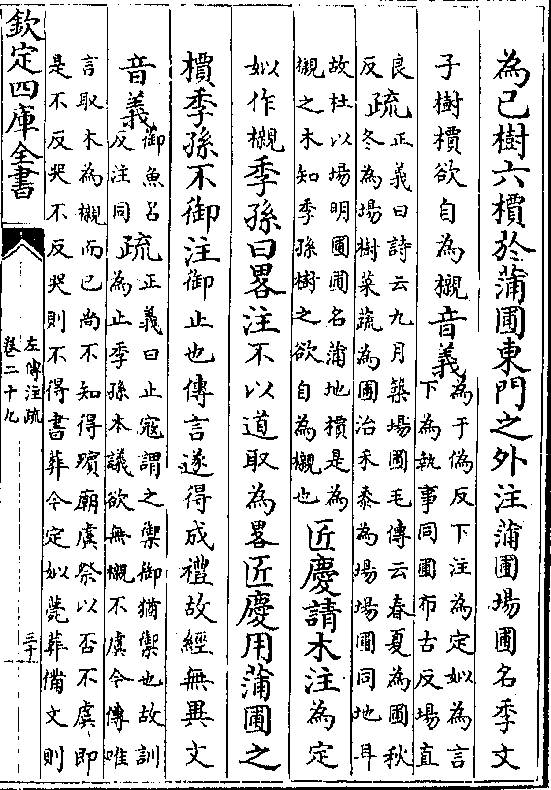 為己樹六檟於蒲圃東門之外注蒲圃場圃名季文
子樹檟欲自為櫬音義為于偽反下注為定姒為言
下為執事同圃布古反場直
良
反疏正義曰詩云九月築場圃毛傳云春夏為圃秋
冬為場樹菜蔬為圃治禾黍為場場圃同地耳
故杜以場明圃圃名蒲地檟是為
櫬之木知季孫樹之欲自為櫬也匠慶請木注為定
姒作櫬季孫曰畧注不以道取為畧匠慶用蒲圃之
檟季孫不御注御止也傳言遂得成禮故經無異文
音義御魚呂
反注同疏正義曰止寇謂之禦御猶禦也故訓
為止季孫本議欲無櫬不虞今傳唯
言取木為櫬而已尚不知得殯廟虞祭以否不虞即
是不反哭不反哭則不得書葬今定姒薨葬備文則
欽定四庫全書
左傳注疏
卷二十九
三十